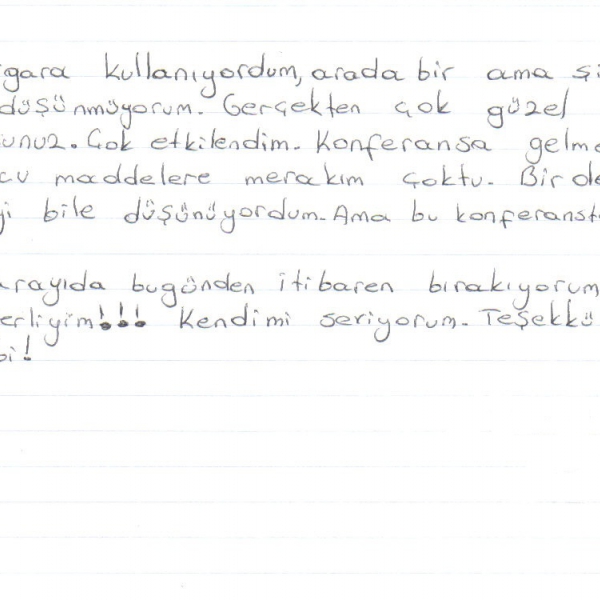 gara kullanıyordum, arada bir ama şi
düşünmüyorum. Gerçekten çok güzel
unuz. Çok etkilendim. Konferansa gelme
cu maddelere merakım çoktu. Bir de
yi bile düşünüyordum. Ama bu konferanst
arayıda bugünden itibaren bırakıyorum
erliyim!!! Kendimi seviyorum. Teşekkü
bi!